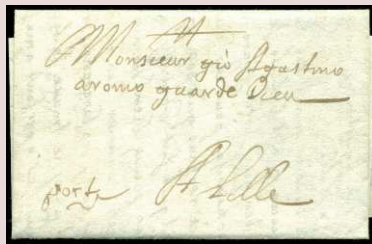 Monsieur gio Agostino
aromo guarde Dieu
port
A Lille